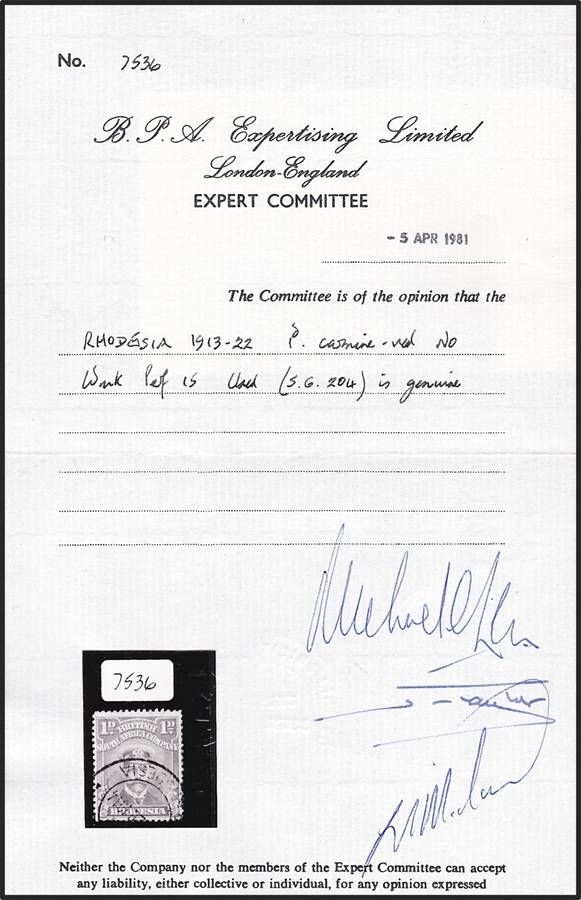 No. 7536
B. P. A. Expertising Limited
London-England
EXPERT COMMITTEE
- 5 APR 1981
The Committee is of the opinion that the
RHODESIA 1913-22 1d. carmine-red No
Wmk Perf 15 Used (S.G. 204) is genuine
7536
1D BRITISH 1D
SOUTH AFRICA COMPANY
RHODESIA
Neither the Company nor the members of the Expert Committee can accept
any liability, either collective or individual, for any opinion expressed